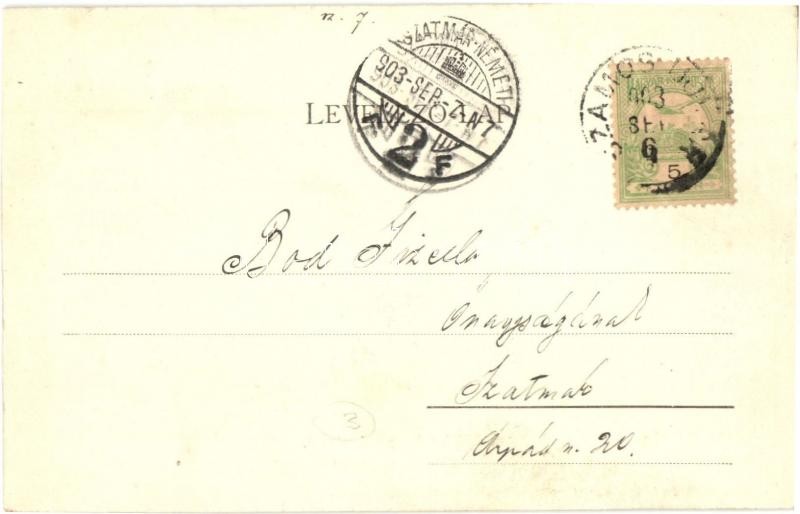 n. 7.
SZATMÁR-NÉMETI
903-SEP-7.N7
2 F
LEVELEZŐ-LAP
903
SEP
6
5
Bod Gizella
Őnagyságának
Szatmár
Árpád u. 20.
3